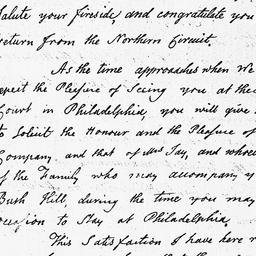 Salute your fireside, and congratulate you
return from the Northern Circuit,
As the time approaches when We
expect the Pleasure of Seeing you at the
Court in Philadelphia, you will give
to Solicit the Honour and the Pleasure of
Company and that of Mrs Jay, and whoe
of the Family who may accompany y
Bush Hill, during the time you may
occasion to Stay at Philadelphia,
This Satisfaction I have here